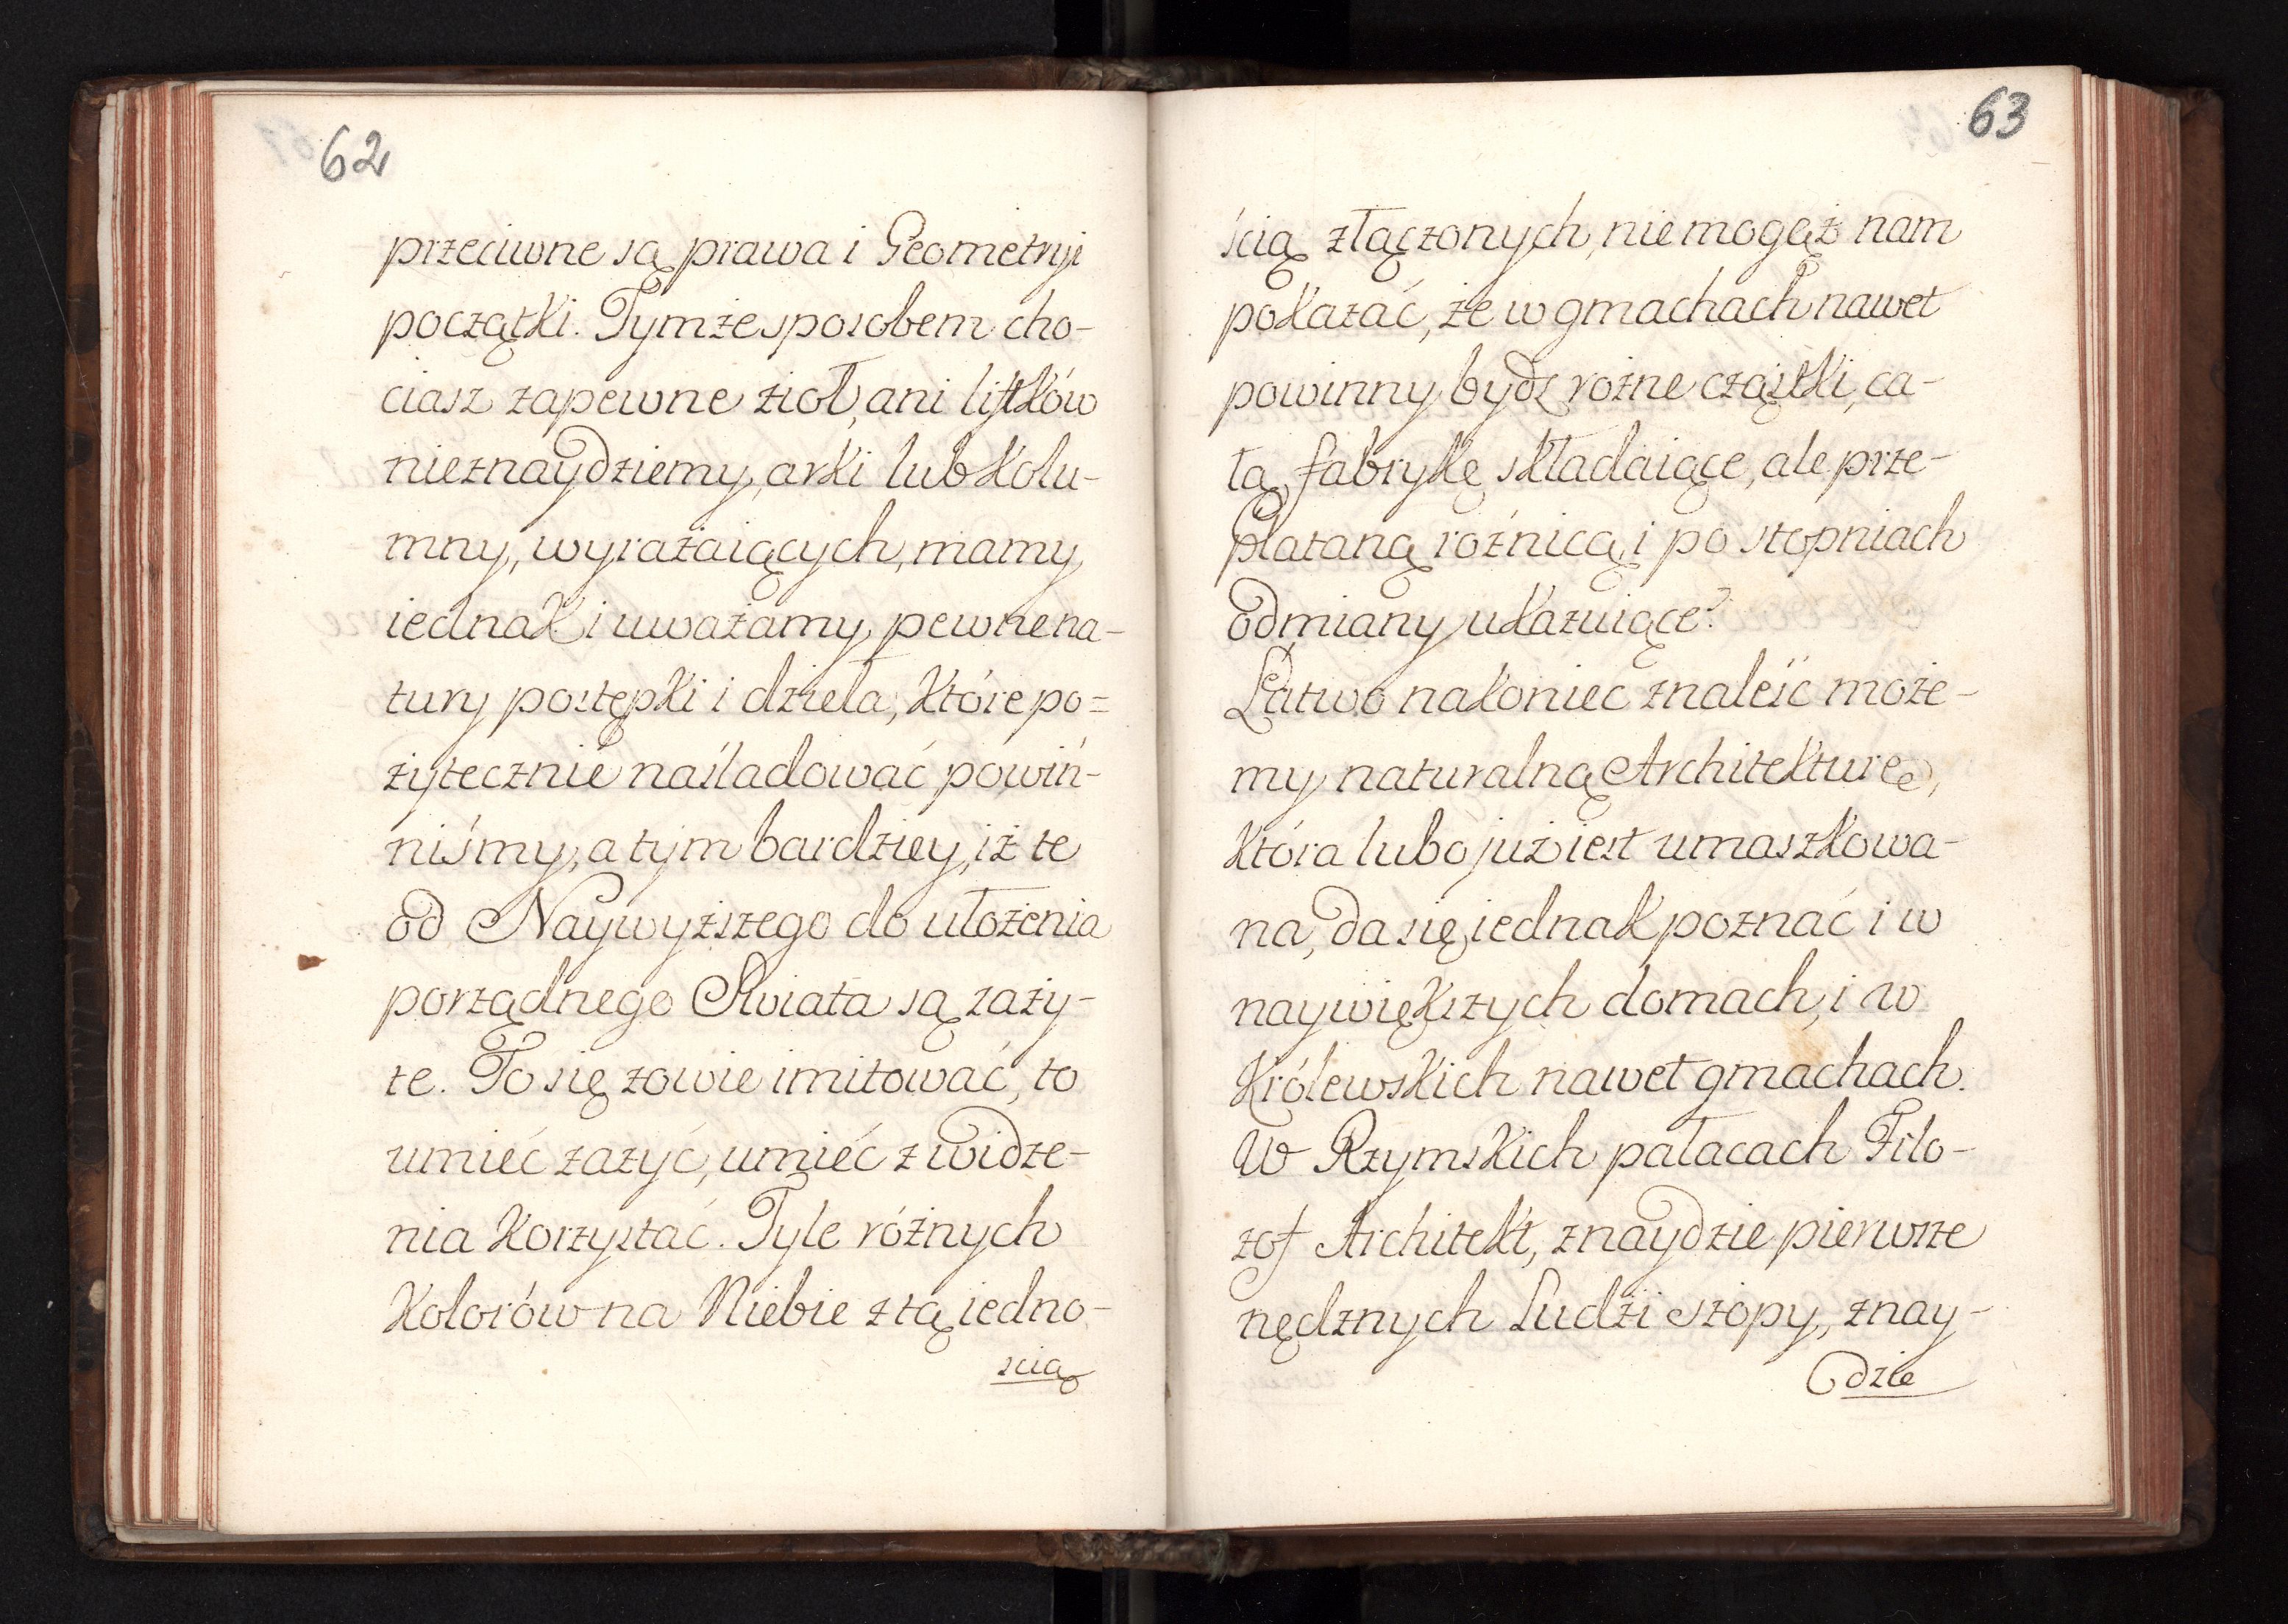 62
przeciwne są prawa i Geometryi
początki. Tymże sposobem cho-
ciasz zapewne zioł, ani listków
nieznaydziemy, arki lub kolu-
mny, wyrażaiących, mamy
iednak i uważamy pewne na-
tury postępki i dzieła, które po=
żytecznie naśladować powin-
niśmy, a tym bardziey, iż te
od Naywyższego do ułożenia
porządnego Swiata są zaży-
te. To się zowie imitować, to
umieć zażyć, umieć z widze-
nia korzystać. Tyle różnych
Kolorów na Niebie z tą iedno-
scią
63
ścią złączonych, nie mogąż nam
pokazać, że w gmachach nawet
powinny bydz rożne cząstki, ca-
łą fabrykę składaiące, ale prze-
plataną rożnicą, i po stopniach
odmiany ukazuiące?
Łatwo nakoniec znaleść może-
my naturalną Architekturę,
która lubo już iest umaszkowa-
na, da się iednak poznać i w
naywiększych domach, i w
Królewskich nawet gmachach.
W Rzymskich pałacach Filo-
zof Architekt, znaydzie pierwsze
nędznych Ludzi szopy, znay-
dzie